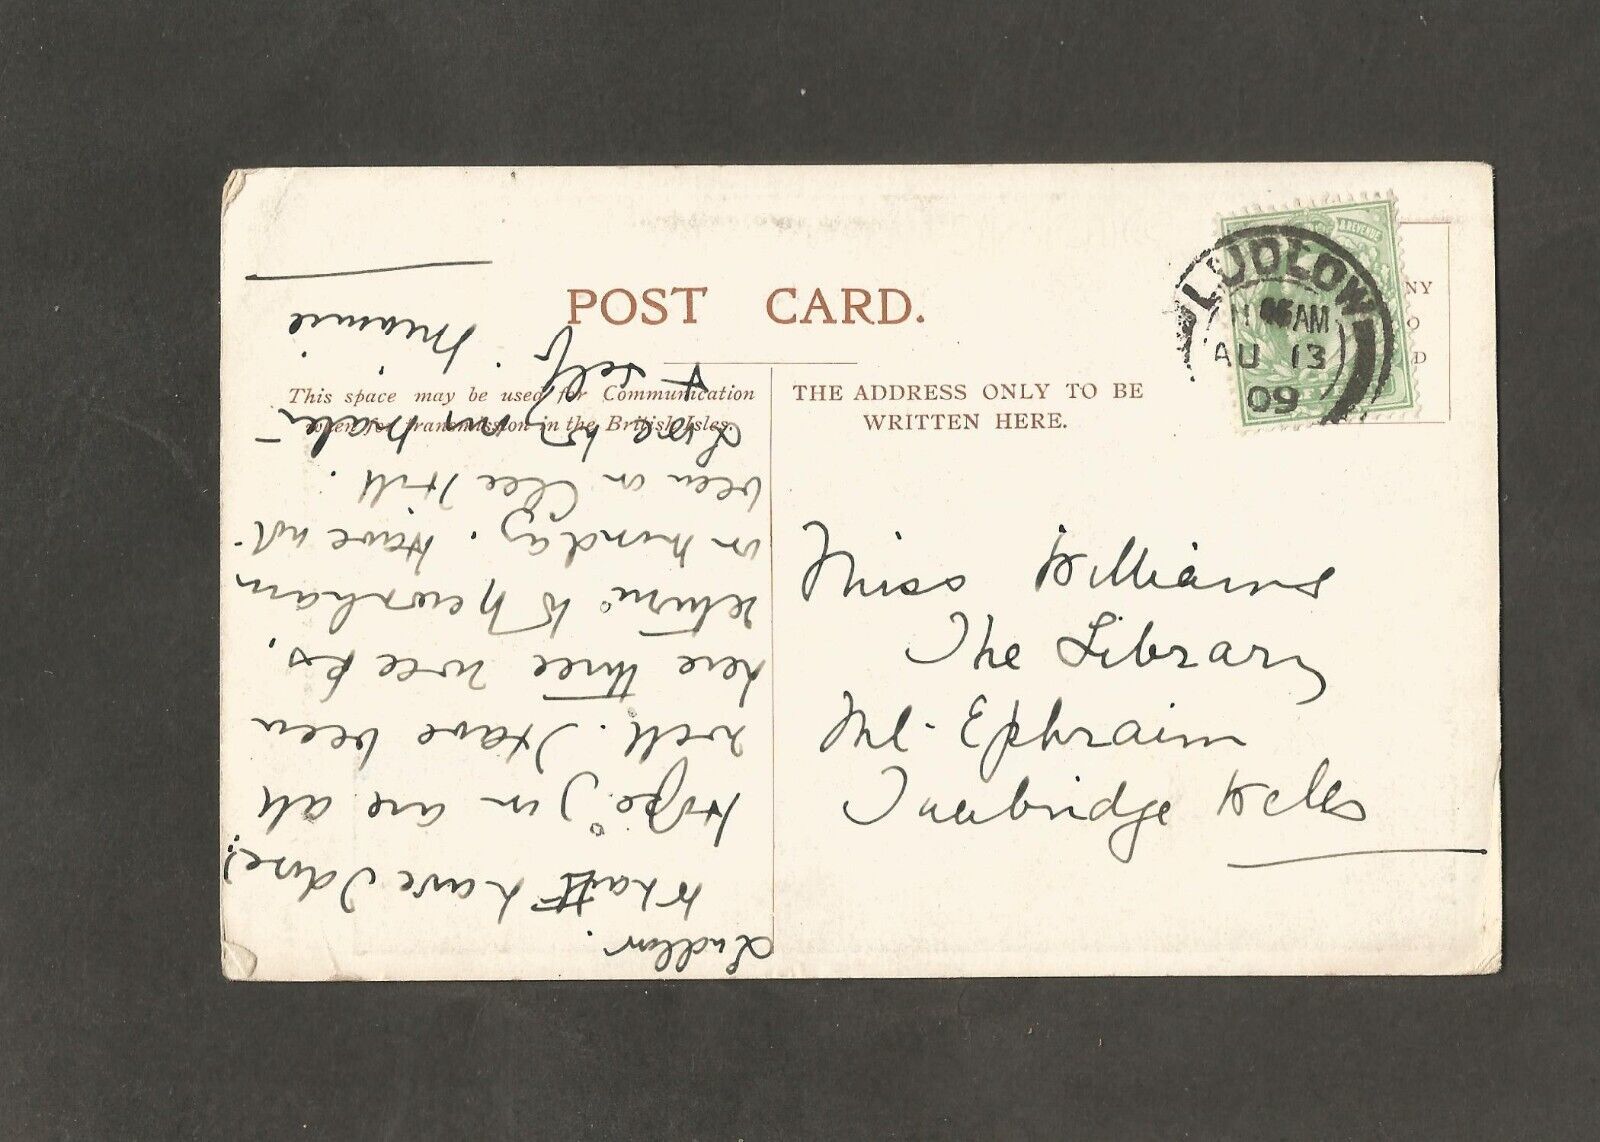 POST CARD.
This space may be used for Communication
when for transmission in the British Isles.
THE ADDRESS ONLY TO BE
WRITTEN HERE.
& REVENUE
NY
O
D
LUDLOW
AM
AU 13
09
Miss Williams
The Library
Mt. Ephraim
Tunbridge Wells
Ludlow.
What have I done?
Hope you are all
well. Have been
here three weeks.
return to Newnham
on Monday. Have not
been on Clee Hill.
Love to
& self. Minnie